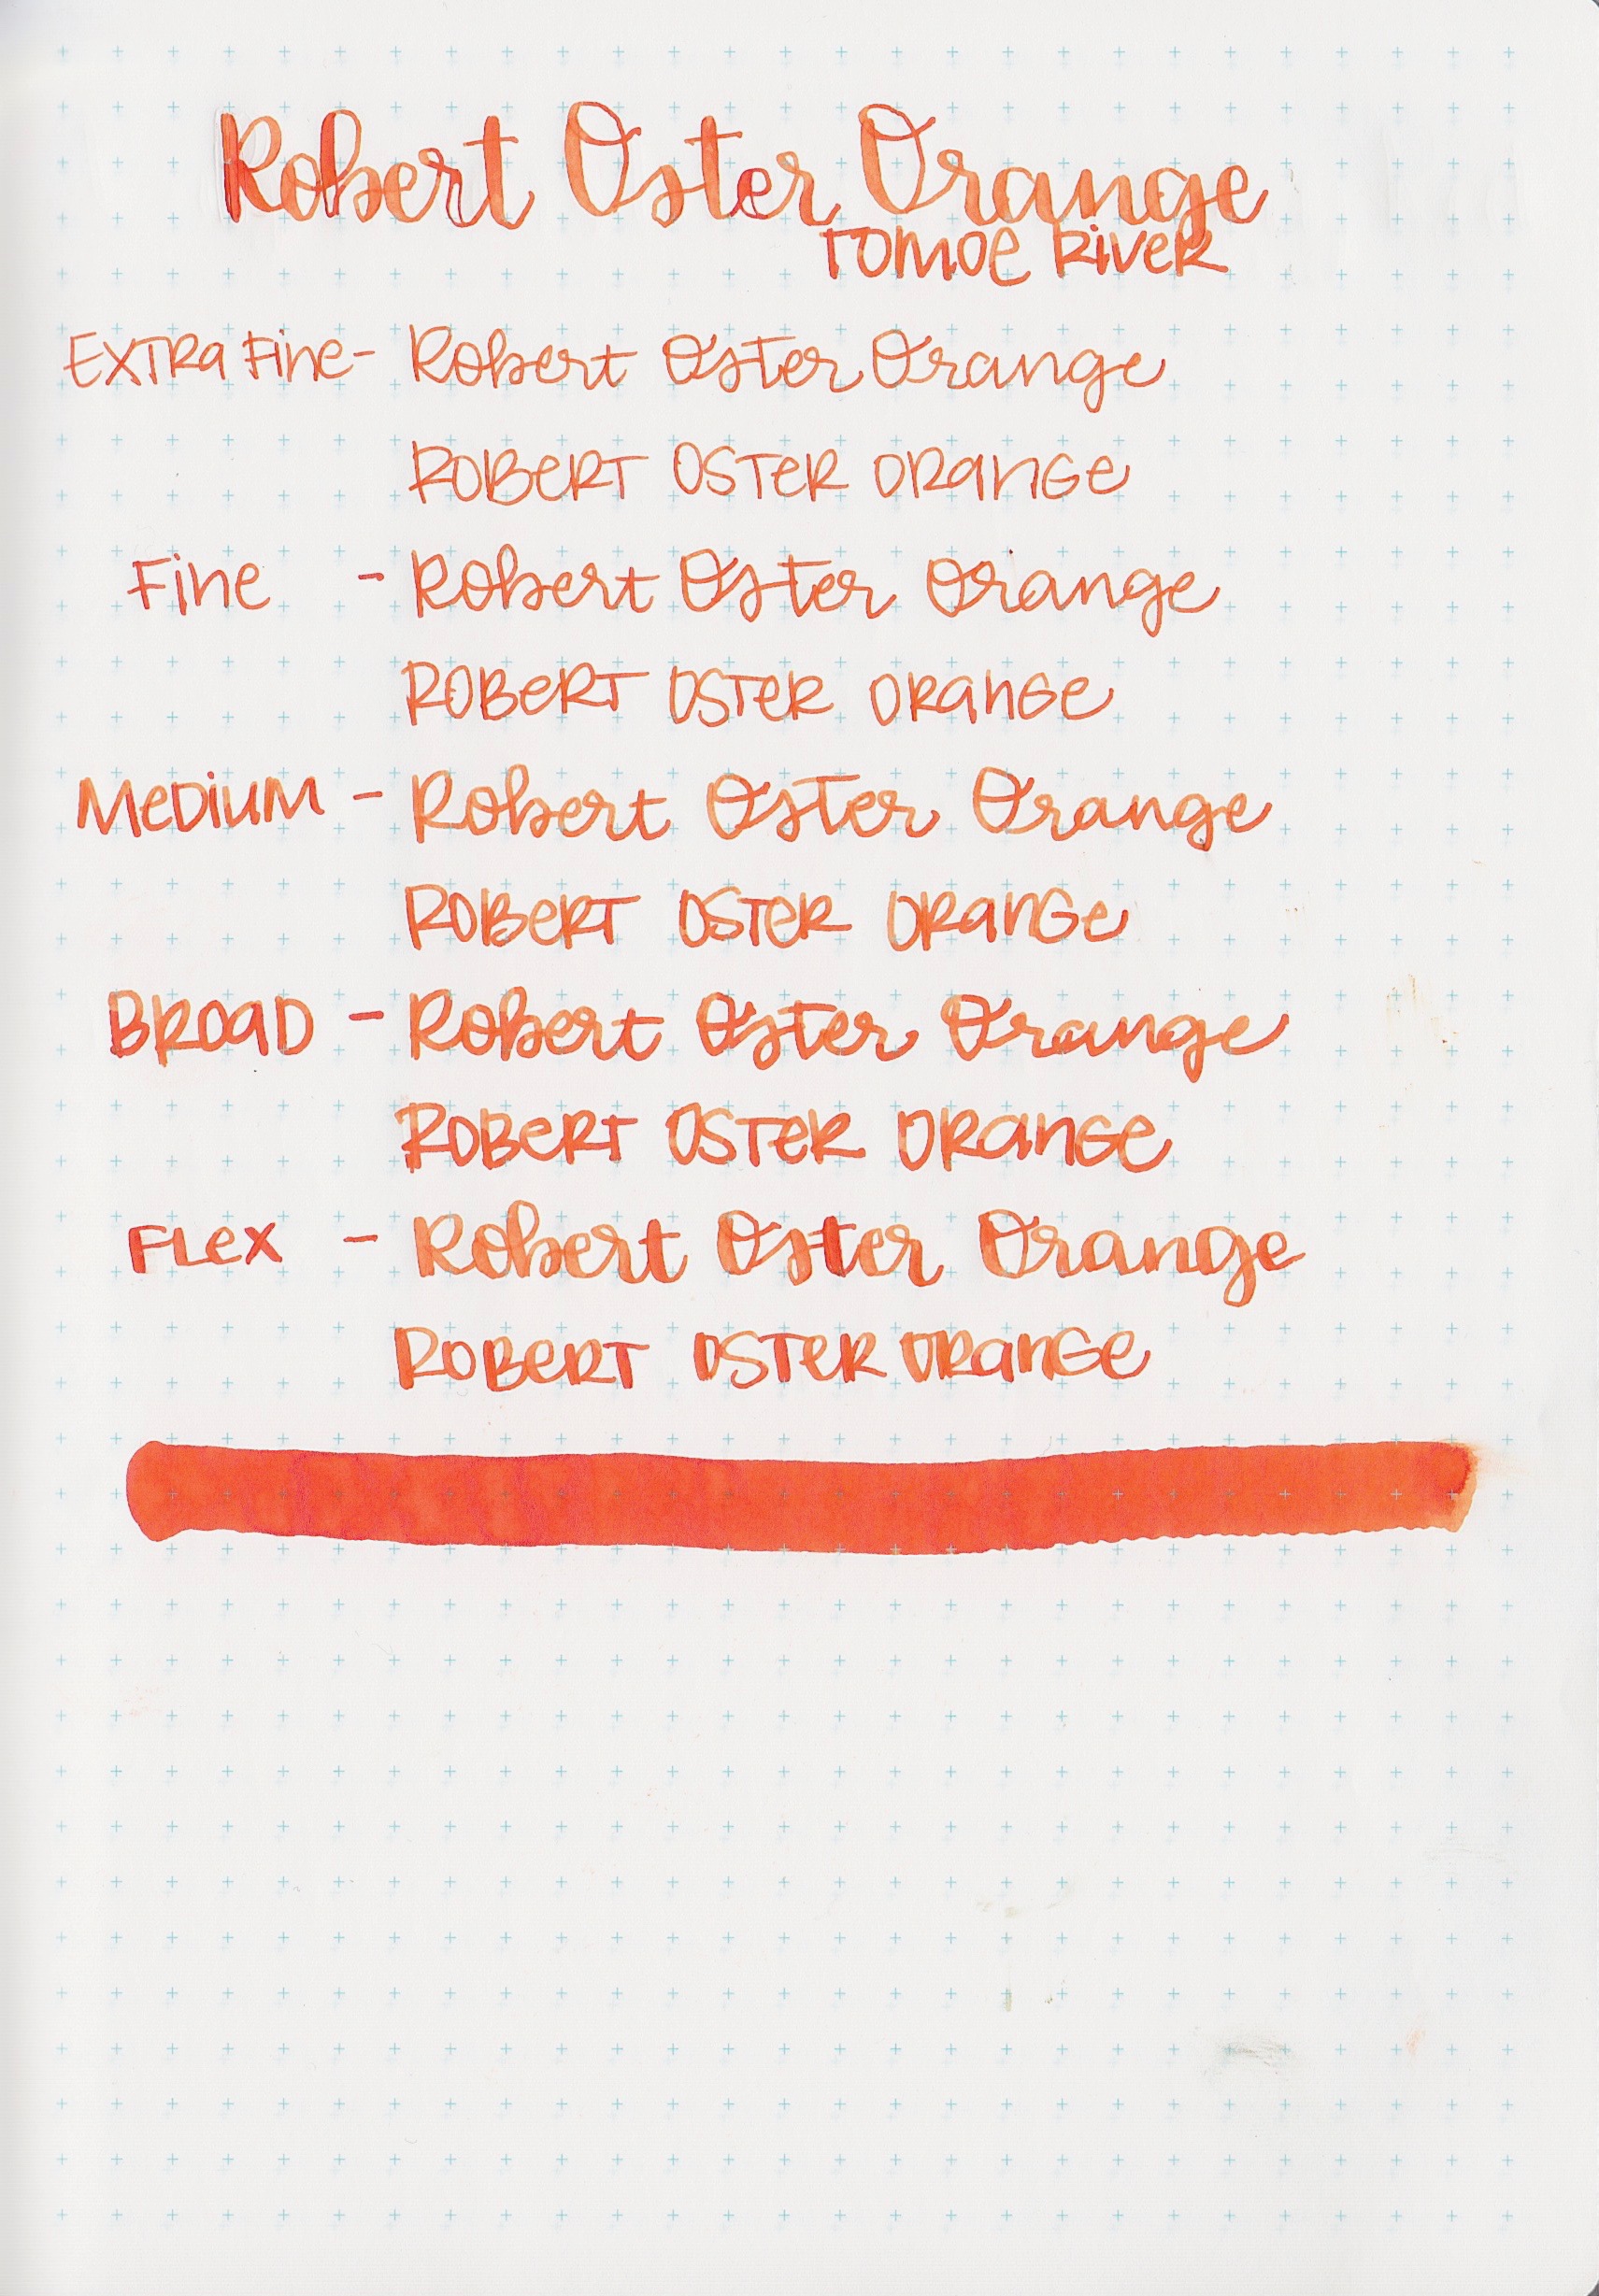 Robert Oster Orange
Tomoe River
Extra Fine - Robert Oster Orange
Robert Oster Orange
Fine - Robert Oster Orange
Robert Oster Orange
Medium - Robert Oster Orange
Robert Oster Orange
Broad - Robert Oster Orange
Robert Oster Orange
Flex - Robert Oster Orange
Robert Oster Orange